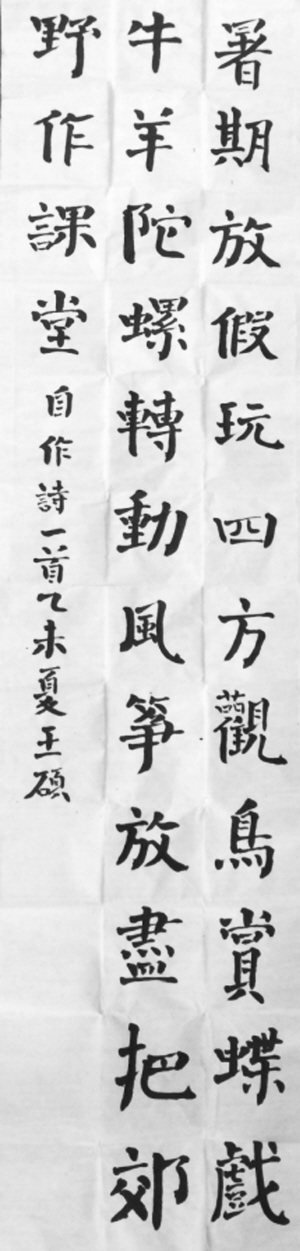 暑期放假玩四方觀鳥賞蝶戲
牛羊陀螺轉動風箏放盡把郊
野作課堂自作詩一首乙未夏王碩